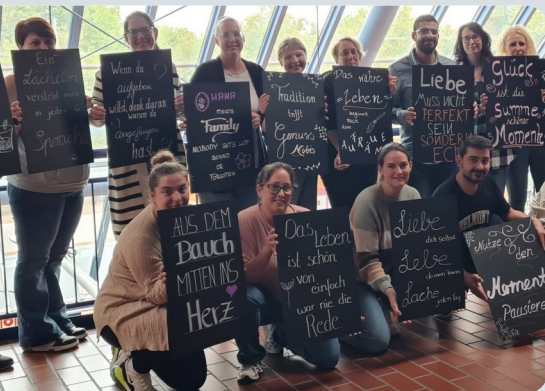 Ein
Lächeln
versteht man
in jeder
Sprache
Wenn du
aufgeben
willst, denk daran
warum du
angefangen
hast
OHANA
means
Family
NOBODY GETS LEFT
BEHIND
OR
FORGOTTEN
Tradition
trifft
Genuss
Das wahre
Leben
AGRUE
LIEBE
MUSS NICHT
PERFEKT
SEIN
SONDERN
ECHT
GLÜCK
ist die
SUMME
schöner
Momente
AUS DEM
Bauch
MITTEN INS
Herz
Das Leben
ist schön
von
einfach
war nie die
Rede
Liebe
dich selbst
Lebe
Lache
jeden Tag
Nutze
den
Moment
Pausiere